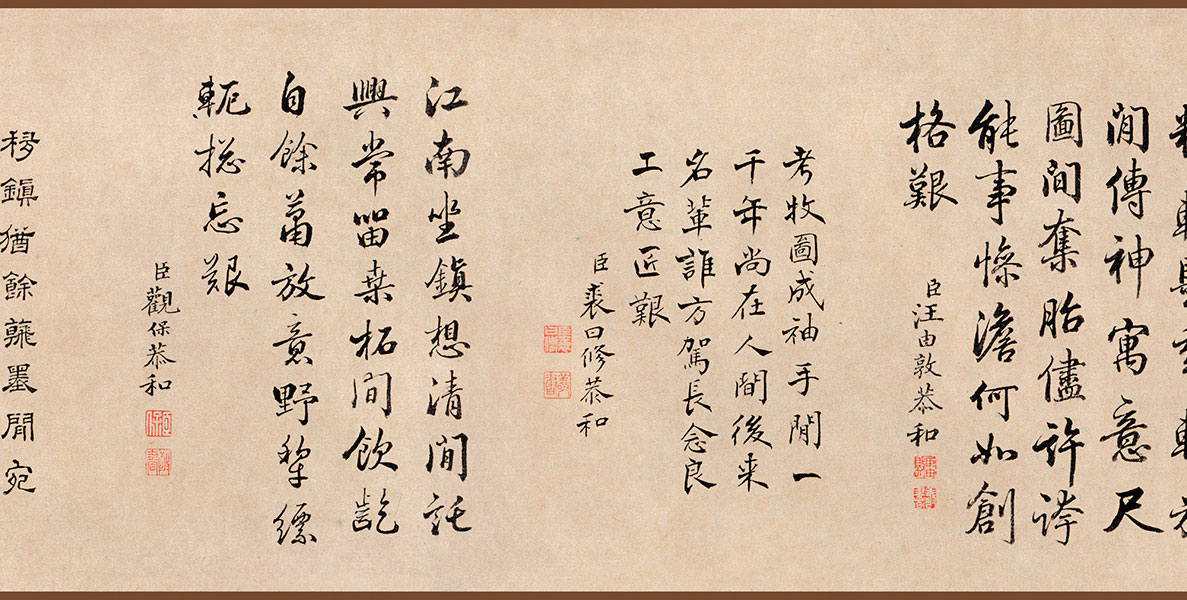 閒傳神寓意尺
圖間奪胎儘許誇
能事慘澹何如創
格艱
臣汪由敦恭和
考牧圖成袖手閒一
千年尚在人間後来
名輩誰方駕長念良
工意匠艱
臣裘曰修恭和
江南坐鎮想清閒託
興常畱桒柘間飲齕
自餘蕭放意野犁縹
軛摠忘艱
臣觀保恭和
鎮猶餘蘸墨閒宛